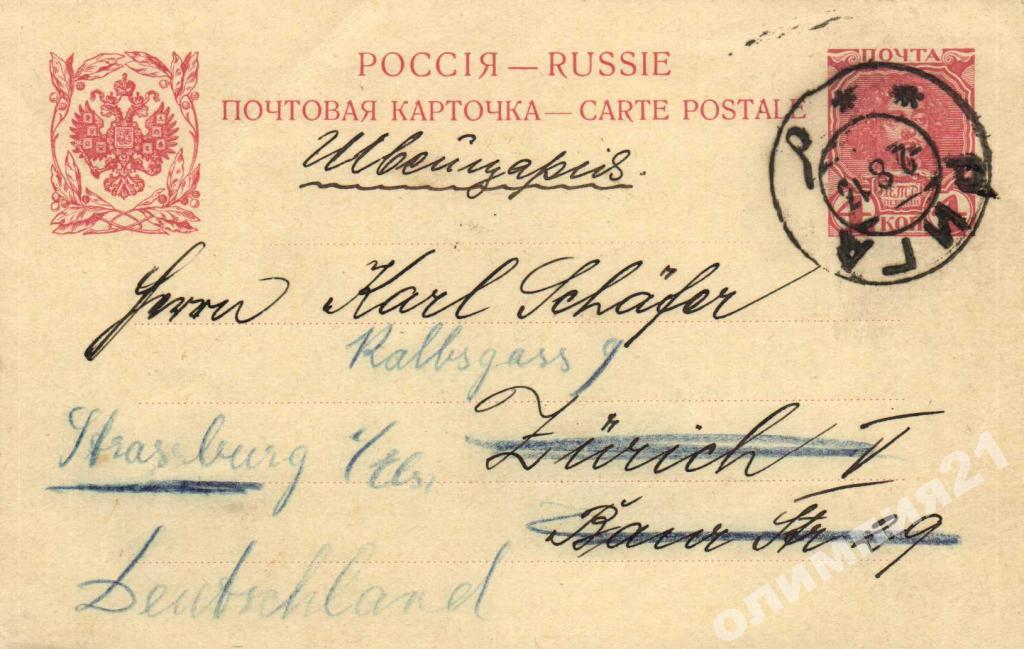 РОССІЯ — RUSSIE
ПОЧТОВАЯ КАРТОЧКА — CARTE POSTALE
ПОЧТА
КОП
РИГА
2 8 13
Швейцарія.
Herrn Karl Schäfer
Kalbsgass 9
Zürich V
Strassburg i/Els.
Baur Str
Deutschland
олимпия21